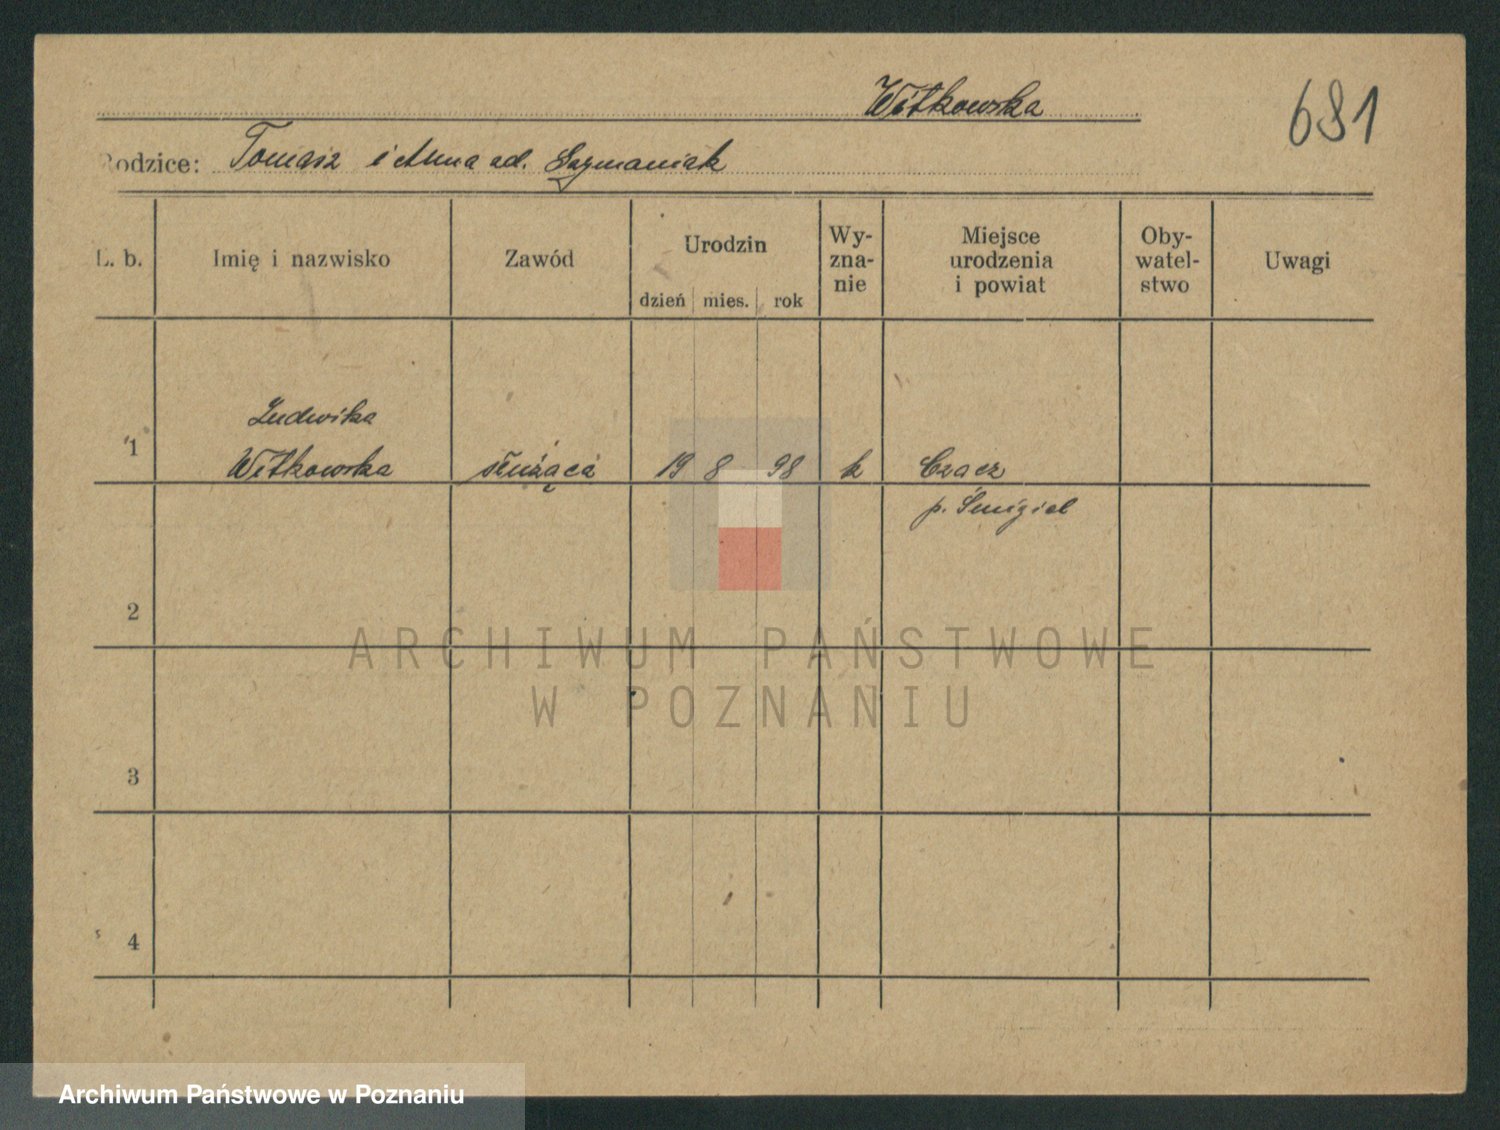 Witkowska
681
Rodzice: Tomasz i Anna ud. Szymaniak
L. b. Imię i nazwisko Zawód Urodzin Wy-zna-nie Miejsce urodzenia i powiat Oby-watel-stwo Uwagi
dzień mies. rok
Ludwika
1 Witkowska służąca 19 8 98 k Czacz
p. Śmigiel
2
ARCHIWUM PAŃSTWOWE
W POZNANIU
3
4
Archiwum Państwowe w Poznaniu